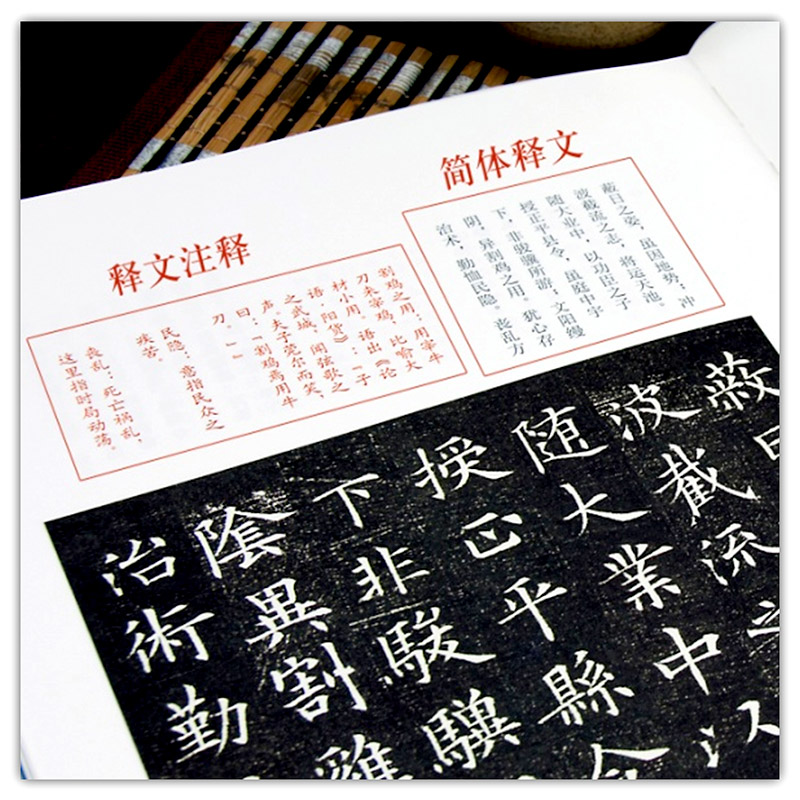 简体释文
蔽日之姿，虽因地势；冲
波截流之志，将运天池。
随大业中，以功臣之子
授正平县令，虽庭中宇
下，非骏骥所游；文阳缦
阴，异割鸡之用。犹心存
治术，勤恤民隐。丧乱方
释文注释
割鸡之用：用宰牛
刀来宰鸡，比喻大
材小用。语出《论
语·阳货》：「子
之武城，闻弦歌之
声。夫子莞尔而笑，
曰：『割鸡焉用牛
刀。』」
民隐：意指民众之
疾苦。
丧乱：死亡祸乱，
这里指时局动荡。
蔽日
波截流之
随大業中以
授正平縣令
下非駿驥
陰異割雞
治術勤